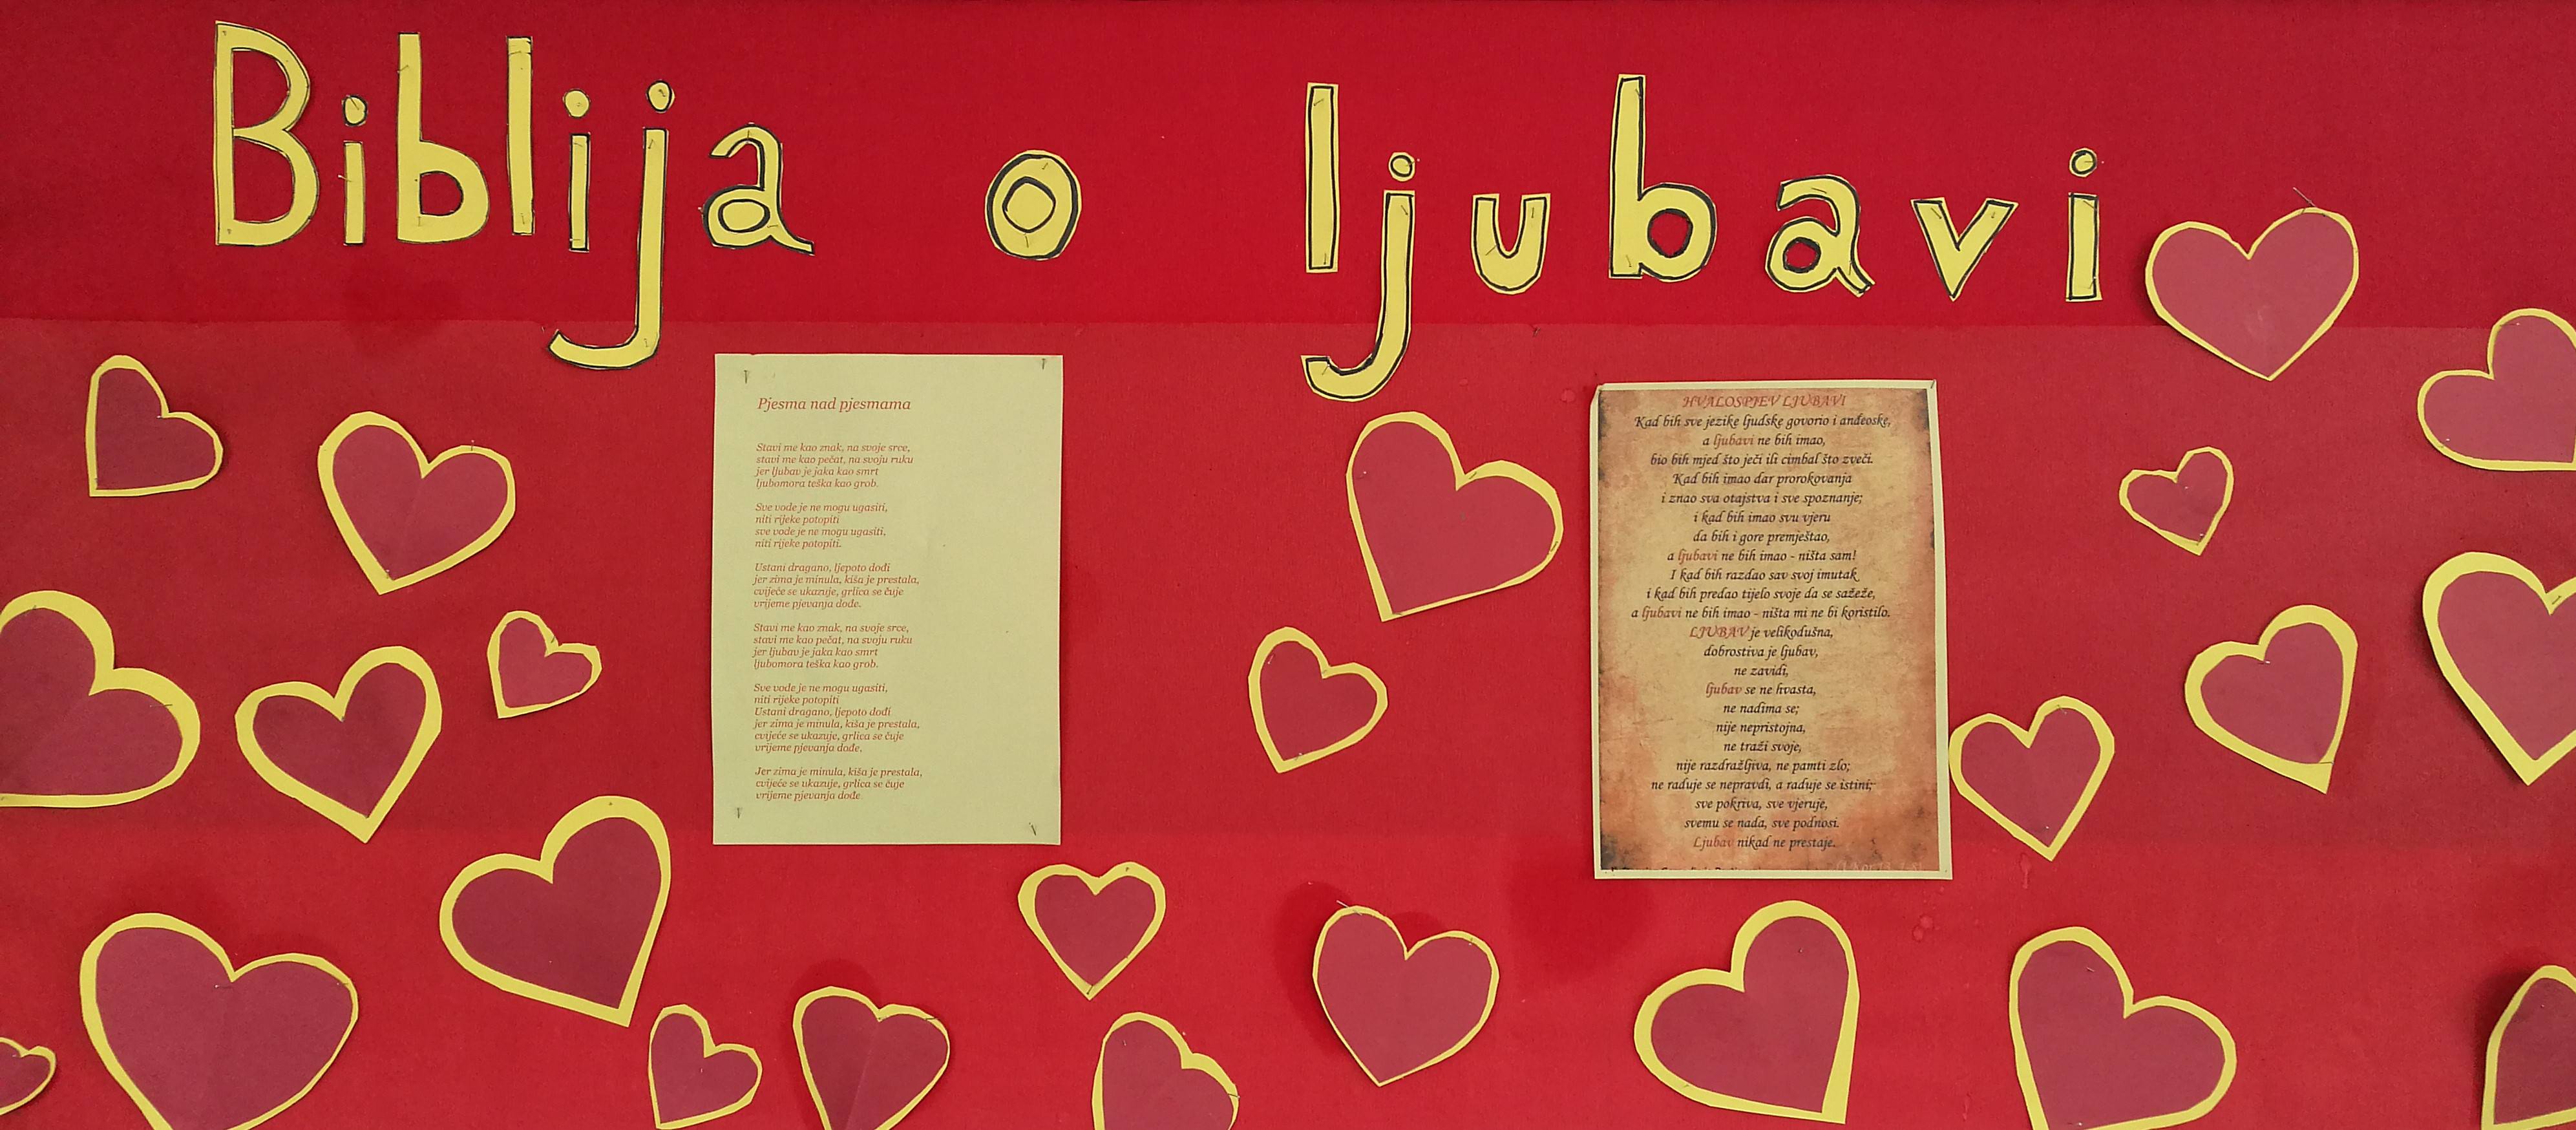 Biblija o ljubavi
Pjesma nad pjesmama
Stavi me kao znak, na svoje srce,
stavi me kao pečat, na svoju ruku
jer ljubav je jaka kao smrt
ljubomora teška kao grob.
Sve vode je ne mogu ugasiti,
niti rijeke potopiti
sve vode je ne mogu ugasiti,
niti rijeke potopiti.
Ustani dragano, ljepoto dođi
jer zima je minula, kiša je prestala,
cvijeće se ukazuje, grlica se čuje
vrijeme pjevanja dođe.
Stavi me kao znak, na svoje srce,
stavi me kao pečat, na svoju ruku
jer ljubav je jaka kao smrt
ljubomora teška kao grob.
Sve vode je ne mogu ugasiti,
niti rijeke potopiti
Ustani dragano, ljepoto dođi
jer zima je minula, kiša je prestala,
cvijeće se ukazuje, grlica se čuje
vrijeme pjevanja dođe.
Jer zima je minula, kiša je prestala,
cvijeće se ukazuje, grlica se čuje
vrijeme pjevanja dođe
HVALOSPJEV LJUBAVI
Kad bih sve jezike ljudske govorio i anđeoske,
a ljubavi ne bih imao,
bio bih mjed što ječi ili cimbal što zveči.
Kad bih imao dar prorokovanja
i znao sva otajstva i sve spoznanje;
i kad bih imao svu vjeru
da bih i gore premještao,
a ljubavi ne bih imao - ništa sam!
I kad bih razdao sav svoj imutak
i kad bih predao tijelo svoje da se sažeže,
a ljubavi ne bih imao - ništa mi ne bi koristilo.
LJUBAV je velikodušna,
dobrostiva je ljubav,
ne zavidi,
ljubav se ne hvasta,
ne nadima se;
nije nepristojna,
ne traži svoje,
nije razdražljiva, ne pamti zlo;
ne raduje se nepravdi, a raduje se istini;
sve pokriva, sve vjeruje,
svemu se nada, sve podnosi.
Ljubav nikad ne prestaje.